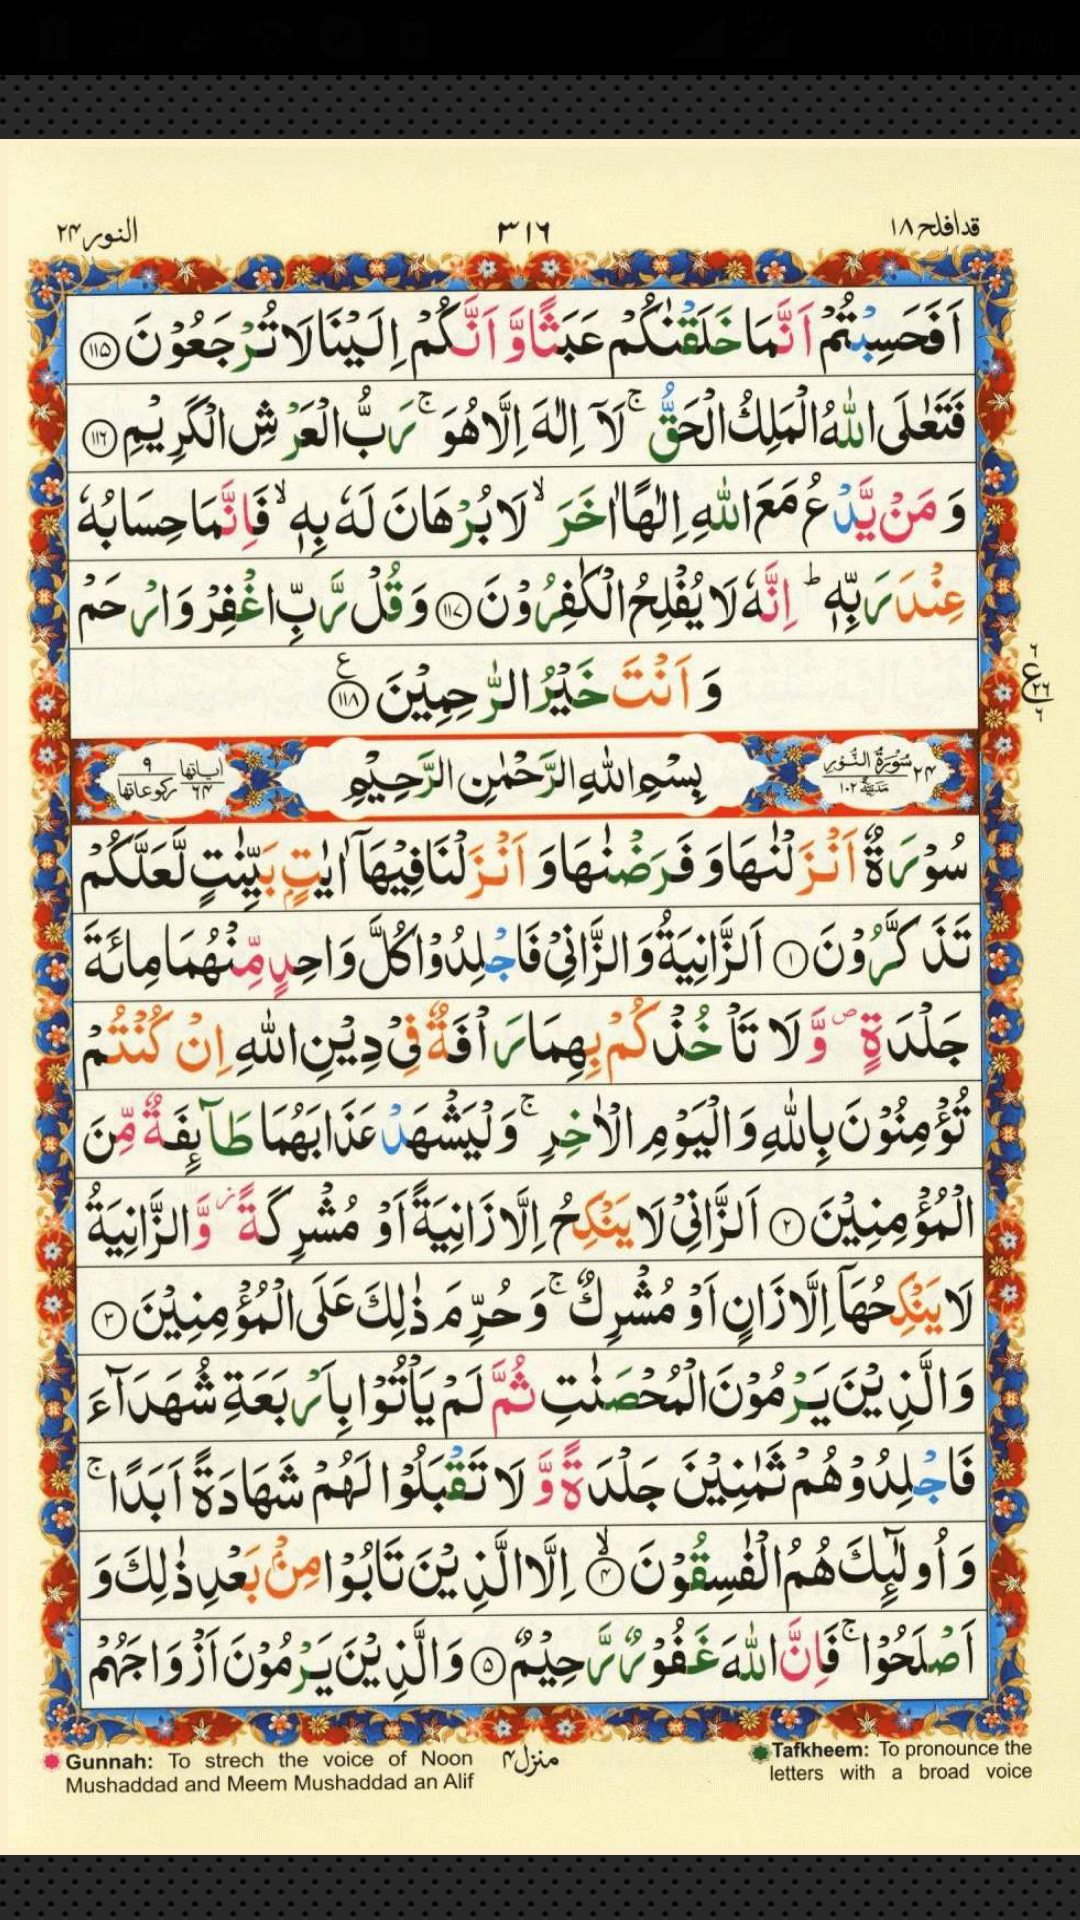 9:17 PM
قدافلح ١٨
٣١٦
النور ٢٤
اَفَحَسِبْتُمْ اَنَّمَا خَلَقْنٰكُمْ عَبَثًا وَّ اَنَّكُمْ اِلَيْنَا لَا تُرْجَعُوْنَ ﴿١١٥﴾
فَتَعٰلَى اللّٰهُ الْمَلِكُ الْحَقُّ ۚ لَاۤ اِلٰهَ اِلَّا هُوَ ۚ رَبُّ الْعَرْشِ الْكَرِيْمِ ﴿١١٦﴾
وَ مَنْ يَّدْعُ مَعَ اللّٰهِ اِلٰهًا اٰخَرَ ۙ لَا بُرْهَانَ لَهٗ بِهٖ ۙ فَاِنَّمَا حِسَابُهٗ
عِنْدَ رَبِّهٖ ؕ اِنَّهٗ لَا يُفْلِحُ الْكٰفِرُوْنَ ﴿١١٧﴾ وَ قُلْ رَّبِّ اغْفِرْ وَ ارْحَمْ
وَ اَنْتَ خَيْرُ الرّٰحِمِيْنَ ﴿١١٨﴾ ع
٦
ع ٢٦
٦
٢٤ سُوْرَةُ النُّوْرِ مَدَنِيَّةٌ ١٠٢
بِسْمِ اللّٰهِ الرَّحْمٰنِ الرَّحِيْمِ
اٰياتها ٦٤ ركوعاتها ٩
سُوْرَةٌ اَنْزَلْنٰهَا وَ فَرَضْنٰهَا وَ اَنْزَلْنَا فِيْهَاۤ اٰيٰتٍۭ بَيِّنٰتٍ لَّعَلَّكُمْ
تَذَكَّرُوْنَ ﴿١﴾ اَلزَّانِيَةُ وَ الزَّانِيْ فَاجْلِدُوْا كُلَّ وَاحِدٍ مِّنْهُمَا مِائَةَ
جَلْدَةٍ ۪ وَّ لَا تَاْخُذْكُمْ بِهِمَا رَاْفَةٌ فِيْ دِيْنِ اللّٰهِ اِنْ كُنْتُمْ
تُؤْمِنُوْنَ بِاللّٰهِ وَ الْيَوْمِ الْاٰخِرِ ۚ وَ لْيَشْهَدْ عَذَابَهُمَا طَآئِفَةٌ مِّنَ
الْمُؤْمِنِيْنَ ﴿٢﴾ اَلزَّانِيْ لَا يَنْكِحُ اِلَّا زَانِيَةً اَوْ مُشْرِكَةً ؗ وَّ الزَّانِيَةُ
لَا يَنْكِحُهَاۤ اِلَّا زَانٍ اَوْ مُشْرِكٌ ۚ وَ حُرِّمَ ذٰلِكَ عَلَى الْمُؤْمِنِيْنَ ﴿٣﴾
وَ الَّذِيْنَ يَرْمُوْنَ الْمُحْصَنٰتِ ثُمَّ لَمْ يَاْتُوْا بِاَرْبَعَةِ شُهَدَآءَ
فَاجْلِدُوْهُمْ ثَمٰنِيْنَ جَلْدَةً وَّ لَا تَقْبَلُوْا لَهُمْ شَهَادَةً اَبَدًا ۚ
وَ اُولٰٓئِكَ هُمُ الْفٰسِقُوْنَ ۙ﴿٤﴾ اِلَّا الَّذِيْنَ تَابُوْا مِنْۢ بَعْدِ ذٰلِكَ وَ
اَصْلَحُوْا ۚ فَاِنَّ اللّٰهَ غَفُوْرٌ رَّحِيْمٌ ﴿٥﴾ وَ الَّذِيْنَ يَرْمُوْنَ اَزْوَاجَهُمْ
Gunnah: To strech the voice of Noon
Mushaddad and Meem Mushaddad an Alif
منزل٤
Tafkheem: To pronounce the
letters with a broad voice